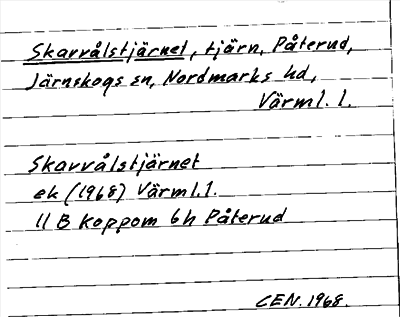 Skarvålstjärnet, tjärn, Påterud,
Järnskogs sn, Nordmarks hd,
Värml. l.
Skarvålstjärnet
ek (1968) Värml. l.
11 B Koppom 6h Påterud
CEN. 1968.